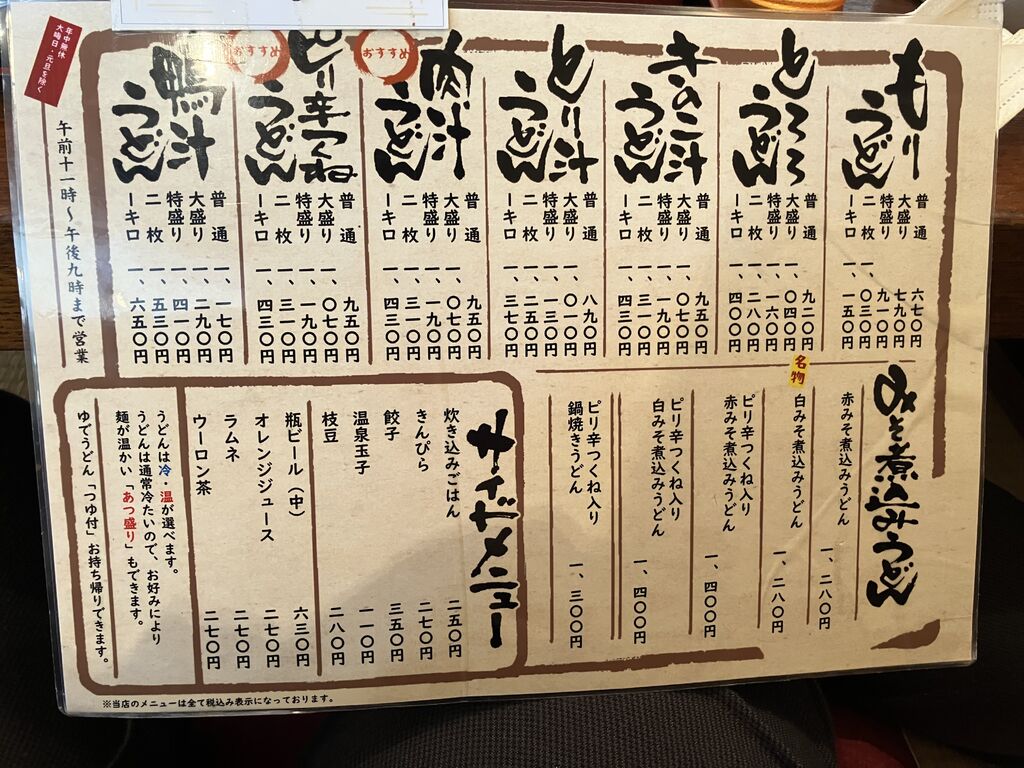 もりうどん
普通 六七〇円
大盛り 七九〇円
特盛り 九一〇円
二枚 一、〇三〇円
一キロ 一、一五〇円
とろろうどん
普通 九二〇円
大盛り 一、〇四〇円
特盛り 一、一六〇円
二枚 一、二八〇円
一キロ 一、四〇〇円
きのこ汁うどん
普通 九五〇円
大盛り 一、〇七〇円
特盛り 一、一九〇円
二枚 一、三一〇円
一キロ 一、四三〇円
とり汁うどん
普通 八九〇円
大盛り 一、〇一〇円
特盛り 一、一三〇円
二枚 一、二五〇円
一キロ 一、三七〇円
おすすめ
肉汁うどん
普通 九五〇円
大盛り 一、〇七〇円
特盛り 一、一九〇円
二枚 一、三一〇円
一キロ 一、四三〇円
おすすめ
ピリ辛つくねうどん
普通 九五〇円
大盛り 一、〇七〇円
特盛り 一、一九〇円
二枚 一、三一〇円
一キロ 一、四三〇円
鴨汁うどん
普通 一、一七〇円
大盛り 一、二九〇円
特盛り 一、四一〇円
二枚 一、五三〇円
一キロ 一、六五〇円
年中無休
大晦日・元旦を除く
午前十一時〜午後九時まで営業
みそ煮込みうどん
赤みそ煮込みうどん 一、二八〇円
名物
白みそ煮込みうどん 一、二八〇円
ピリ辛つくね入り
赤みそ煮込みうどん 一、四〇〇円
ピリ辛つくね入り
白みそ煮込みうどん 一、四〇〇円
ピリ辛つくね入り
鍋焼きうどん 一、三〇〇円
サイドメニュー
炊き込みごはん 二五〇円
きんぴら 二七〇円
餃子 三五〇円
温泉玉子 一一〇円
枝豆 二八〇円
瓶ビール(中) 六三〇円
オレンジジュース 二七〇円
ラムネ 二七〇円
ウーロン茶 二七〇円
うどんは冷・温が選べます。
うどんは通常冷たいので、お好みにより
麺が温かい「あつ盛り」もできます。
ゆでうどん「つゆ付」お持ち帰りできます。
※当店のメニューは全て税込み表示になっております。